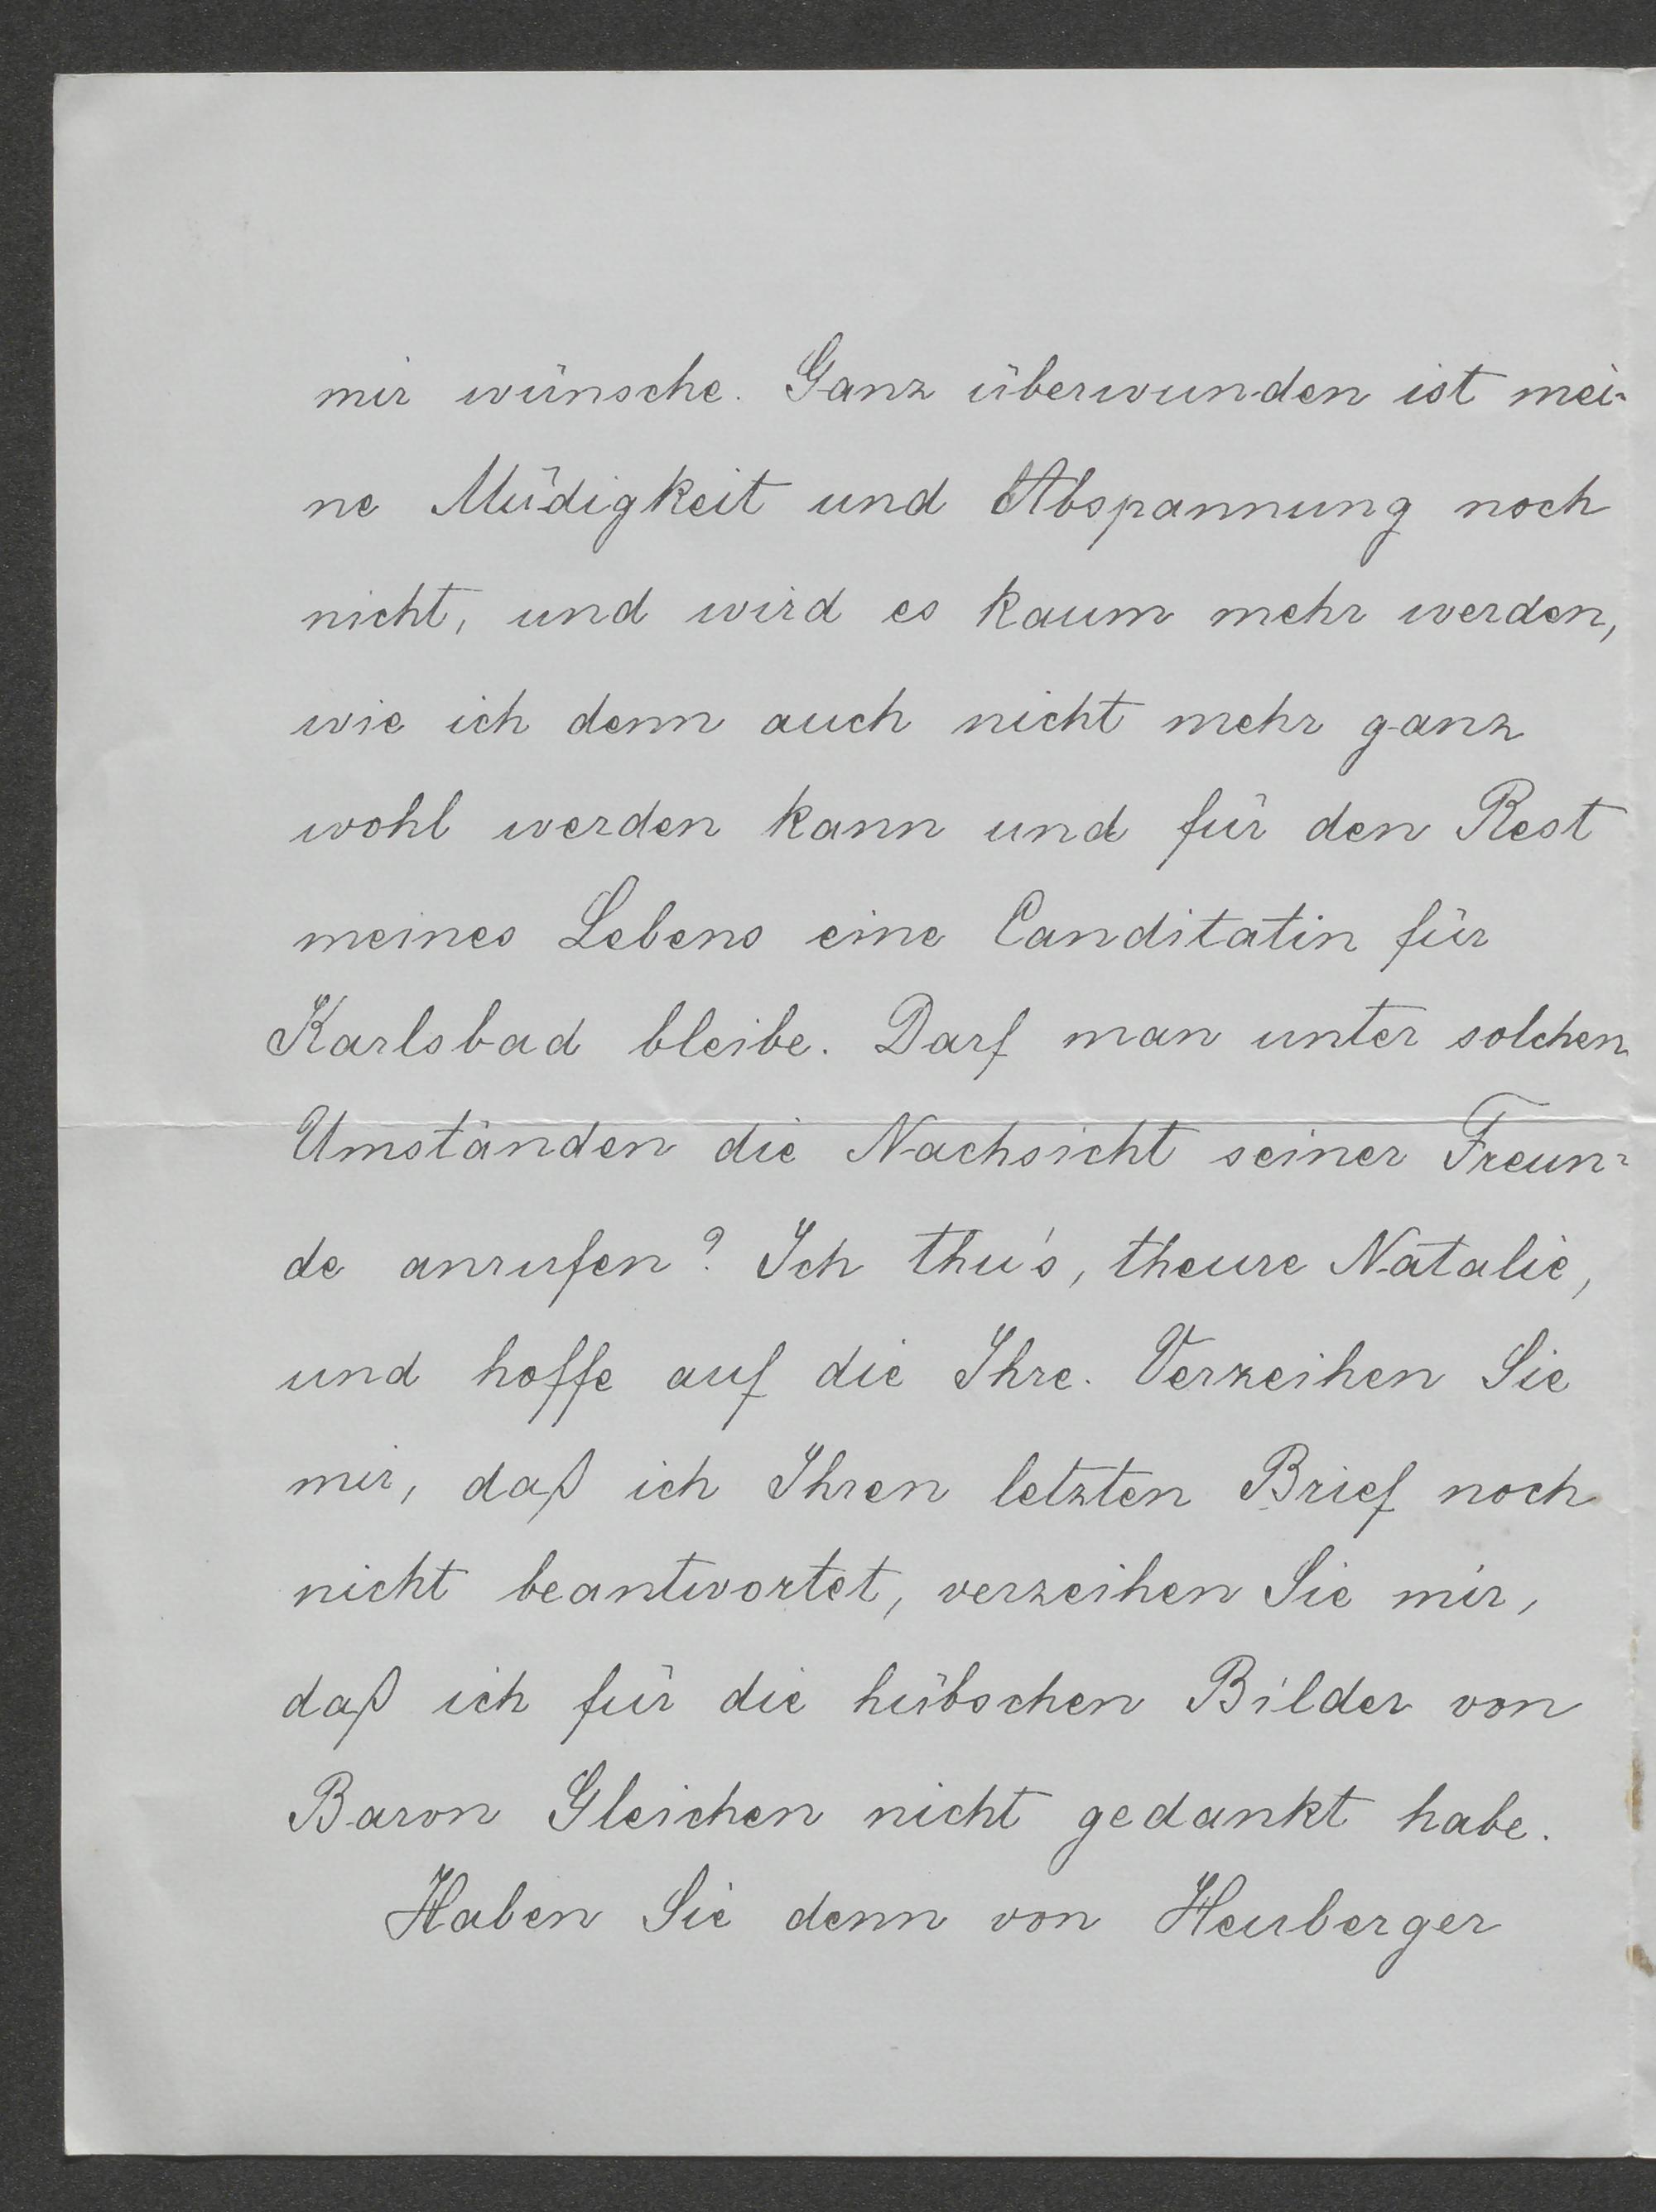 mir wünsche. Ganz überwunden ist mei-
ne Müdigkeit und Abspannung noch
nicht, und wird es kaum mehr werden,
wie ich denn auch nicht mehr ganz
wohl werden kann und für den Rest
meines Lebens eine Canditatin für
Karlsbad bleibe. Darf man unter solchen
Umständen die Nachsicht seiner Freun-
de anrufen? Ich thu's, theure Natalie,
und hoffe auf die Ihre. Verzeihen Sie
mir, daß ich Ihren letzten Brief noch
nicht beantwortet, verzeihen Sie mir,
daß ich für die hübschen Bilder von
Baron Gleichen nicht gedankt habe.
Haben Sie denn von Heuberger